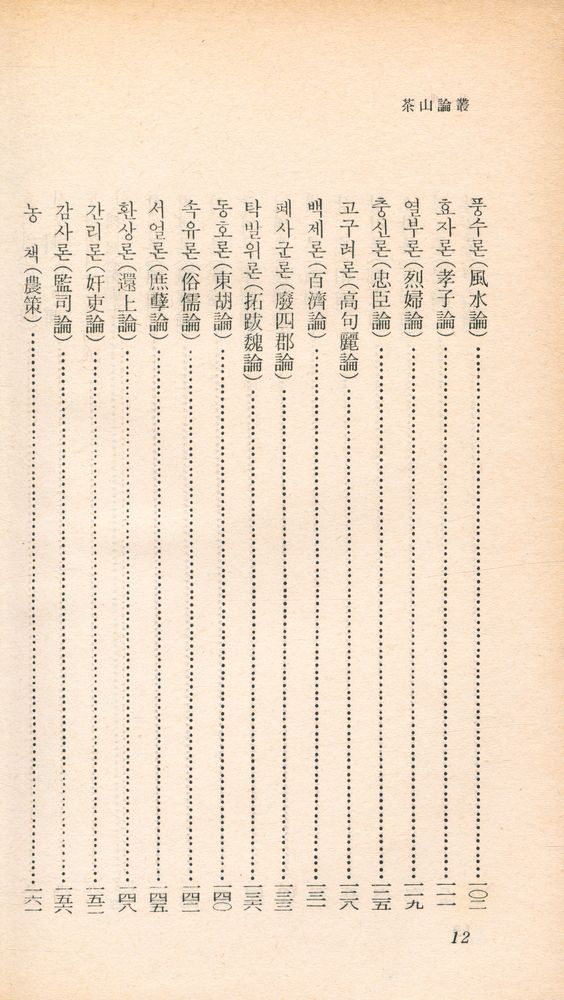 茶山論叢
풍수론(風水論)……一〇二
효자론(孝子論)……一一一
열부론(烈婦論)……一一九
충신론(忠臣論)……一二五
고구려론(高句麗論)……一二八
백제론(百濟論)……一三一
폐사군론(廢四郡論)……一三三
탁발위론(拓跋魏論)……一三六
동호론(東胡論)……一四〇
속유론(俗儒論)……一四二
서얼론(庶孼論)……一四五
환상론(還上論)……一四八
간리론(奸吏論)……一五二
감사론(監司論)……一五六
농 책(農策)……一六一
12